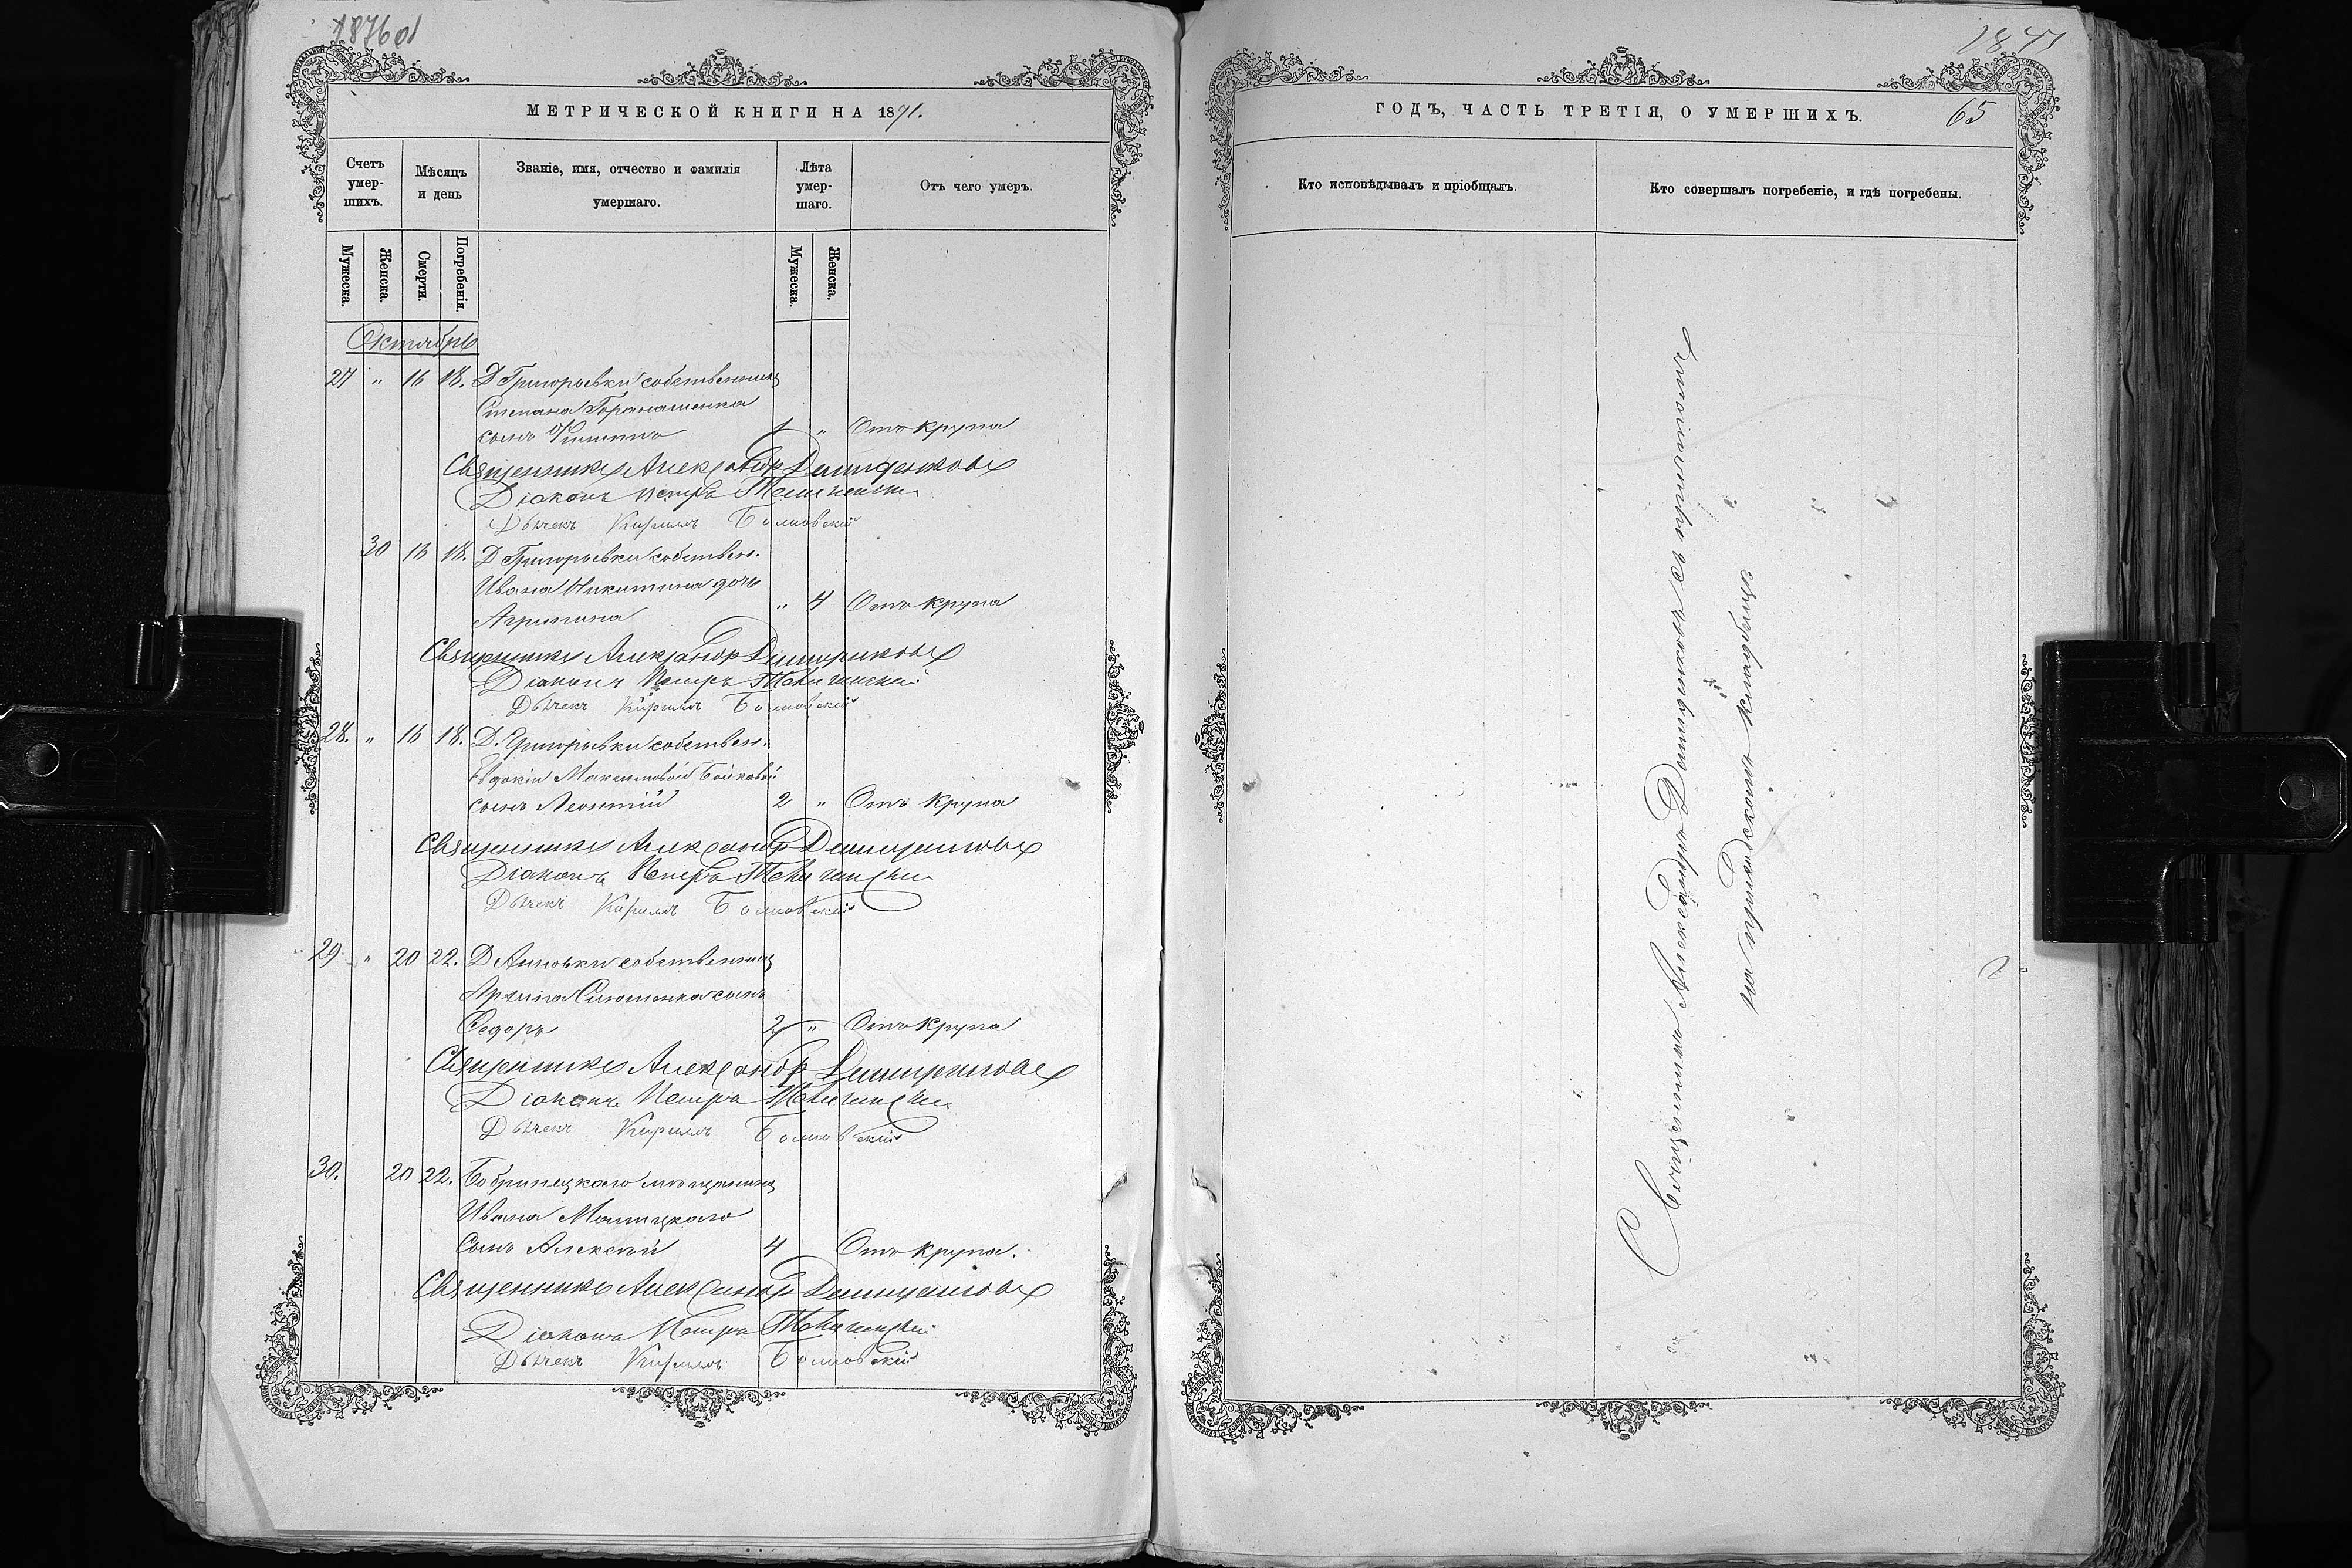 1876об
МЕТРИЧЕСКОЙ КНИГИ НА 1891.
Счетъ умершихъ.
Мѣсяцъ и день
Званіе, имя, отчество и фамилія умершаго.
Лѣта умершаго.
Отъ чего умеръ.
Мужеска.
Женска.
Смерти.
Погребенія.
Мужеска.
Женска.
Октябрь
27 " 16 18. Д Григорьевки собственника
Степана
сынъ Филиппъ 1 " Отъ крупа
Священникъ Александръ
Діаконъ Петръ
Дьячекъ Кириллъ
30 16 18. Д Григорьевки собствен.
Ивана Никитина дочь
Агрипина " 4 Отъ крупа
Священникъ Александръ
Діаконъ Петръ
Дьячекъ Кириллъ
28. " 16 18. Д. Григорьевки собствен.
Евдокіи Максимовой Бойковой
сынъ Леонтій 2 " Отъ крупа
Священникъ Александръ
Діаконъ Петръ
Дьячекъ Кириллъ
29 " 20 22. Д Анновки собственника
сынъ
Федоръ 2 " Отъ крупа
Священникъ Александръ
Діаконъ Петръ
Дьячекъ Кириллъ
30. 20 22. Бобринецкаго мѣщанина
Ивана
Сынъ Алексѣй 4 Отъ крупа.
Священникъ Александръ
Діаконъ Петръ
Дьячекъ Кириллъ
1877
ГОДЪ, ЧАСТЬ ТРЕТІЯ, О УМЕРШИХЪ.
65
Кто исповѣдывалъ и пріобщалъ.
Кто совершалъ погребеніе, и гдѣ погребены.
Священникъ Александръ съ причтомъ
на приходскомъ кладбищѣ